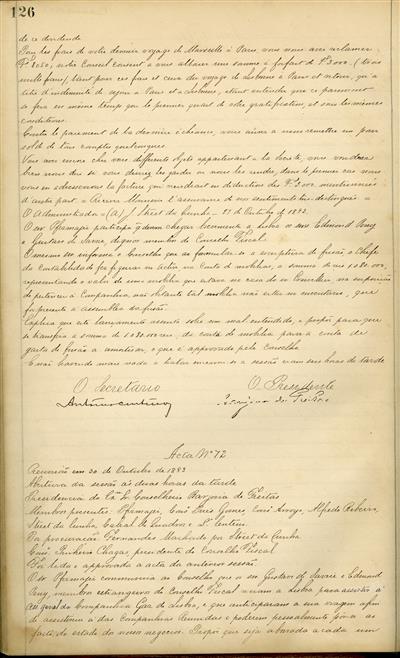 126
de ce dividende
Pour les frais de votre dernier voyage de Marseille à Paris, vous nous avez réclamé
Fcs 1050, notre Conseil consent à vous allouer une somme à forfait de Fcs 3000 (trois
mille francs) tant pour ces frais et ceux du voyage de Lisbonne à Paris et retour, qu'à
titre d'indemnité de séjour à Paris et à Lisbonne, étant entendu que ce paiement
se fera en même temps que le premier quart de votre gratification, et sous les mêmes
conditions.
Contre le paiement de la dernière échéance, vous aurez à nous remettre un pour
solde de tous comptes quelconques.
Vous avez encore chez vous différents objets appartenant à la Société, vous voudrez
bien nous dire si vous désirez les garder ou nous les rendre, dans le premier cas nous
vous en adresserons la facture qui viendrait en déduction des Fcs 3000 mentionnés
d'autre part. = Recevez Monsieur l'assurance de nos sentiments très distingués =
O Administrador = (a) J. Street da Cunha = 17 de Outubro de 1893.
O snr participa que devem chegar brevemente a Lisboa os snrs Edmond Puuy
e Gustave de Savoie, dignos membros do Conselho Fiscal.
O mesmo snr informa o Conselho que ao formular-se a escriptura de fusão o Chefe
da Contabilidade fez figurar no activo na conta de mobilia, a somma de reis 1.080.000,
representando o valor de uma mobilia que estava em casa do snr Conselheiro na supposição
de pertencer á Companhia, não obstante tal mobilia não estar no inventario, que
foi presente á assembléa da fusão.
Explica que este lançamento assenta sobre um mal entendido, e propõe para que
se transfira a somma de 1.080.000 reis da conta de mobilia para a conta de
gastos de fusão a amortisar, o que é approvado pelo Conselho.
E não havendo mais nada a tratar encerrou-se a sessão eram seis horas da tarde
O Secretario O Presidente
Acta Nº 72
Reunião em 30 de Outubro de 1893
Abertura da sessão ás duas horas da tarde
Presidencia do Exmo Sr Conselheiro Barjona de Freitas
Membros presentes: Cons. Pires Gomes, Cons. Arroyo, Alfredo Ribeiro,
Street da Cunha, Centeno.
Por procuração Fernandes Machado por Street da Cunha
Cons. Pinheiro Chagas, presidente do Conselho Fiscal
Foi lida e approvada a acta da anterior sessão.
O snr communica ao Conselho que os snrs Gustave de Savoie e Edmond
Puuy, membros estrangeiros do Conselho Fiscal veem a Lisboa para assistir á
geral da Companhia Gaz de Lisboa, e que anteciparam a sua viagem afim
de assistirem á das Companhias Reunidas e poderem pessoalmente pôr-se ao
facto do estado do nosso negocio. Propõe que seja abonada a cada um